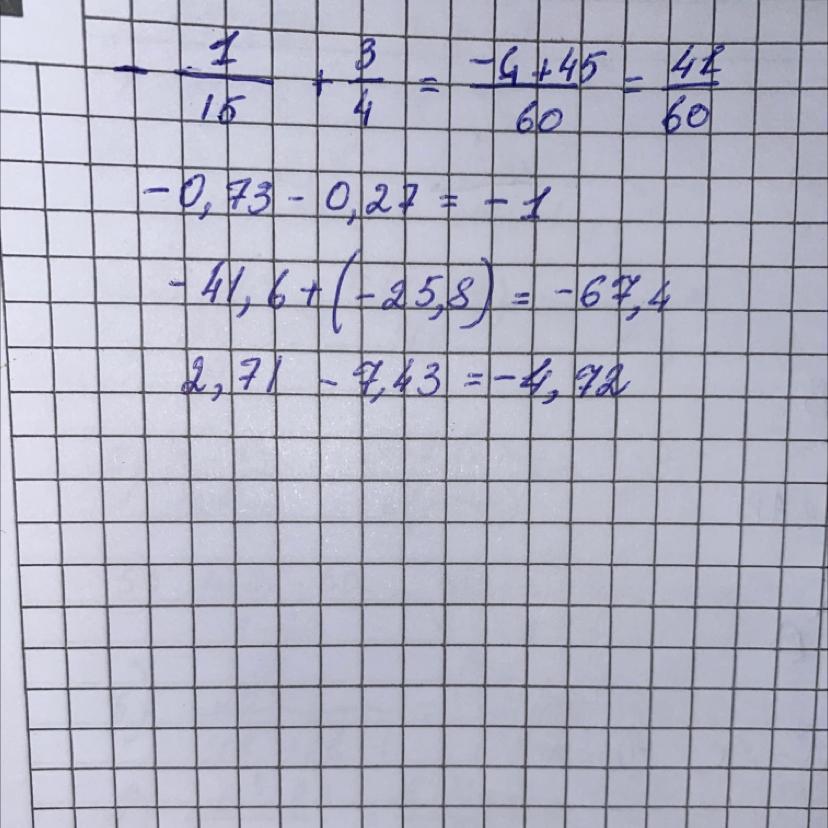 - 1/15 + 3/4 = -4+45/60 = 41/60
-0,73 - 0,27 = -1
-41,6+(-25,8) = -67,4
2,71 - 7,43 = -4,72